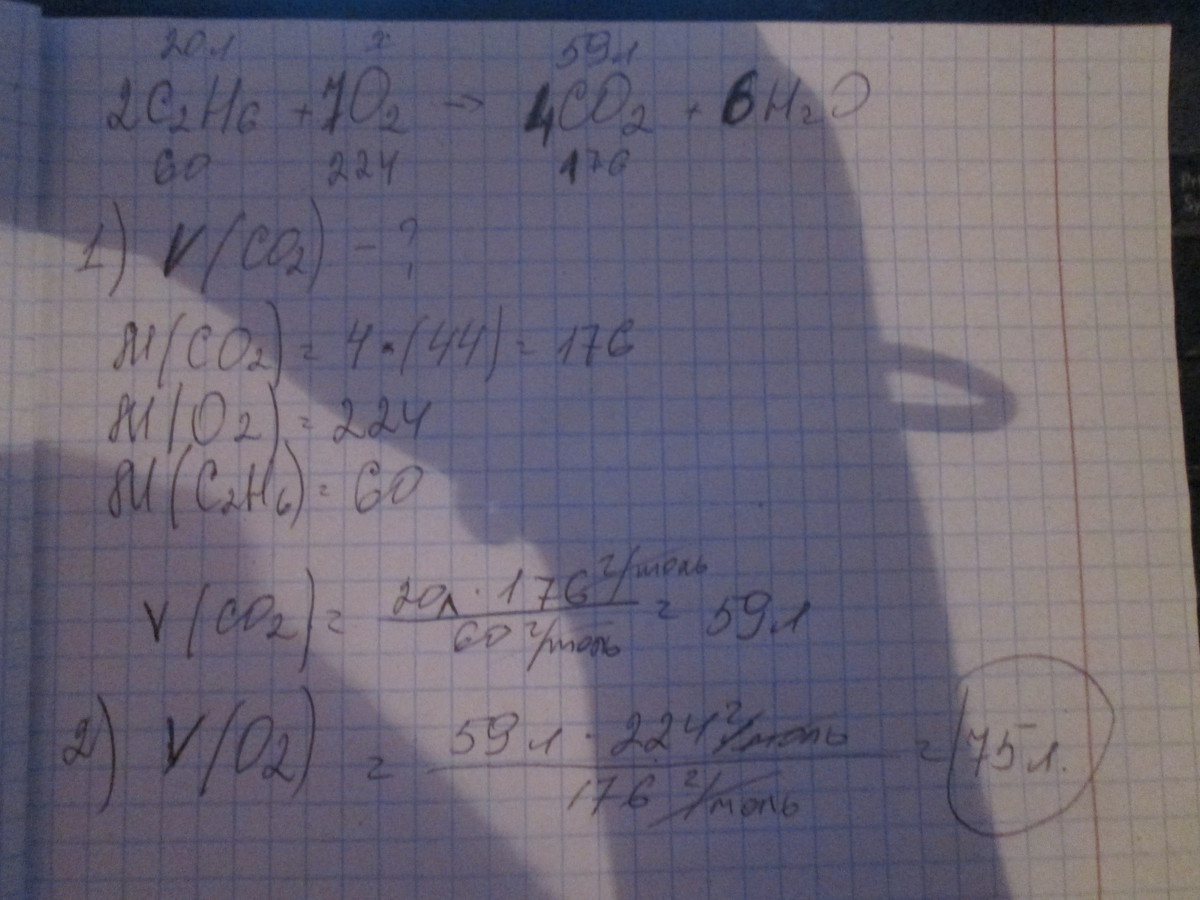 20л x 59л
2C₂H₆ + 7O₂ → 4CO₂ + 6H₂O
60 224 176
1) V(CO₂) - ?
M(CO₂) = 4·(44) = 176
M(O₂) = 224
M(C₂H₆) = 60
V(CO₂) = 20л · 176 г/моль / 60 г/моль = 59л
2) V(O₂) = 59л · 224 г/моль / 176 г/моль = 75л.